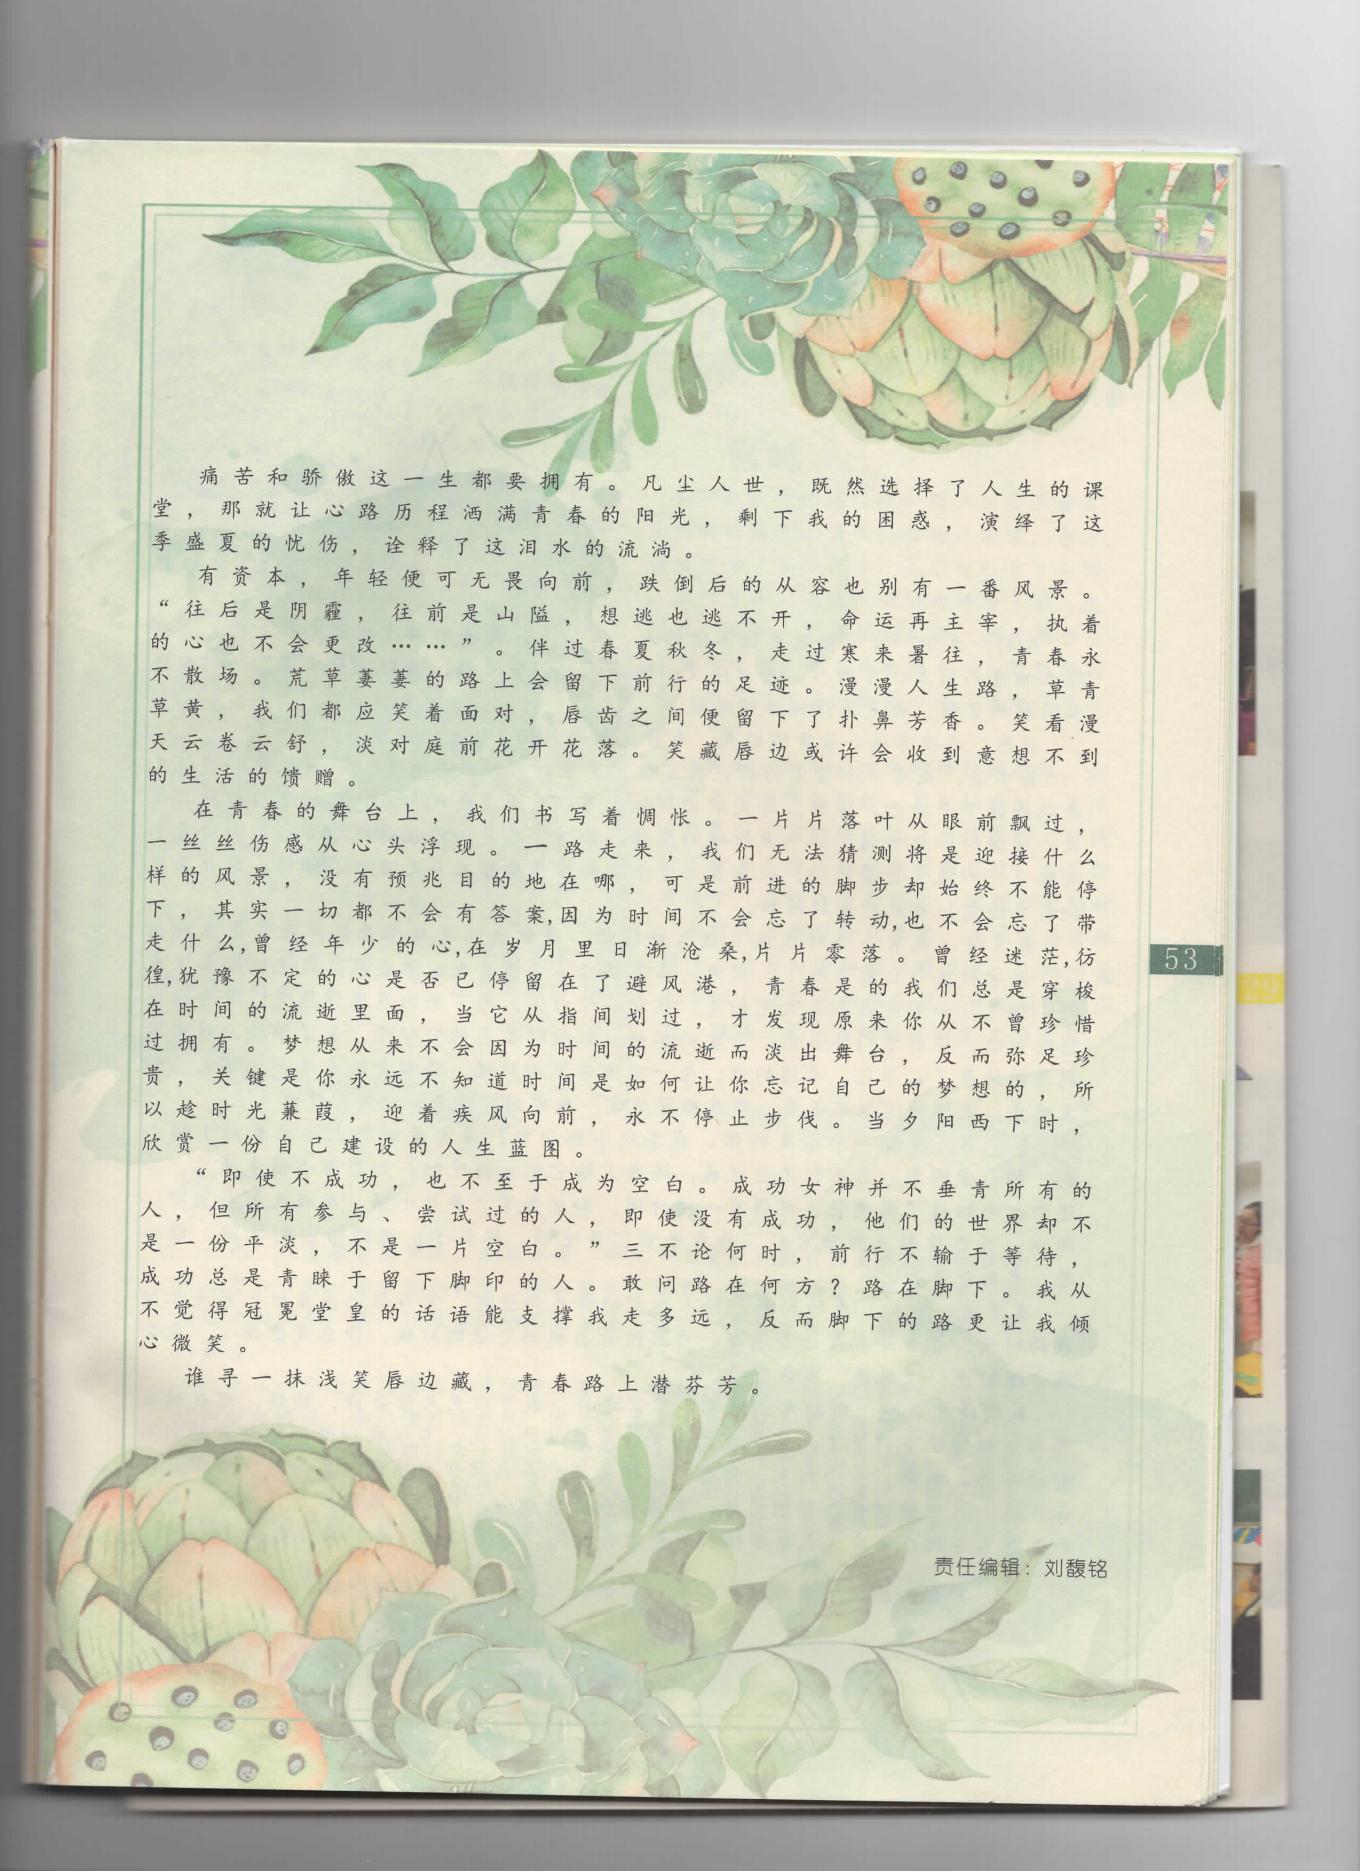 痛苦和骄傲这一生都要拥有。凡尘人世，既然选择了人生的课
堂，那就让心路历程洒满青春的阳光，剩下我的困惑，演绎了这
季盛夏的忧伤，诠释了这泪水的流淌。
有资本，年轻便可无畏向前，跌倒后的从容也别有一番风景。
“往后是阴霾，往前是山隘，想逃也逃不开，命运再主宰，执着
的心也不会更改……”。伴过春夏秋冬，走过寒来暑往，青春永
不散场。荒草萋萋的路上会留下前行的足迹。漫漫人生路，草青
草黄，我们都应笑着面对，唇齿之间便留下了扑鼻芳香。笑看漫
天云卷云舒，淡对庭前花开花落。笑藏唇边或许会收到意想不到
的生活的馈赠。
在青春的舞台上，我们书写着惆怅。一片片落叶从眼前飘过，
一丝丝伤感从心头浮现。一路走来，我们无法猜测将是迎接什么
样的风景，没有预兆目的地在哪，可是前进的脚步却始终不能停
下，其实一切都不会有答案,因为时间不会忘了转动,也不会忘了带
走什么,曾经年少的心,在岁月里日渐沧桑,片片零落。曾经迷茫,彷
徨,犹豫不定的心是否已停留在了避风港，青春是的我们总是穿梭
在时间的流逝里面，当它从指间划过，才发现原来你从不曾珍惜
过拥有。梦想从来不会因为时间的流逝而淡出舞台，反而弥足珍
贵，关键是你永远不知道时间是如何让你忘记自己的梦想的，所
以趁时光蒹葭，迎着疾风向前，永不停止步伐。当夕阳西下时，
欣赏一份自己建设的人生蓝图。
“即使不成功，也不至于成为空白。成功女神并不垂青所有的
人，但所有参与、尝试过的人，即使没有成功，他们的世界却不
是一份平淡，不是一片空白。”三不论何时，前行不输于等待，
成功总是青睐于留下脚印的人。敢问路在何方？路在脚下。我从
不觉得冠冕堂皇的话语能支撑我走多远，反而脚下的路更让我倾
心微笑。
谁寻一抹浅笑唇边藏，青春路上潜芬芳。
53
责任编辑：刘馥铭